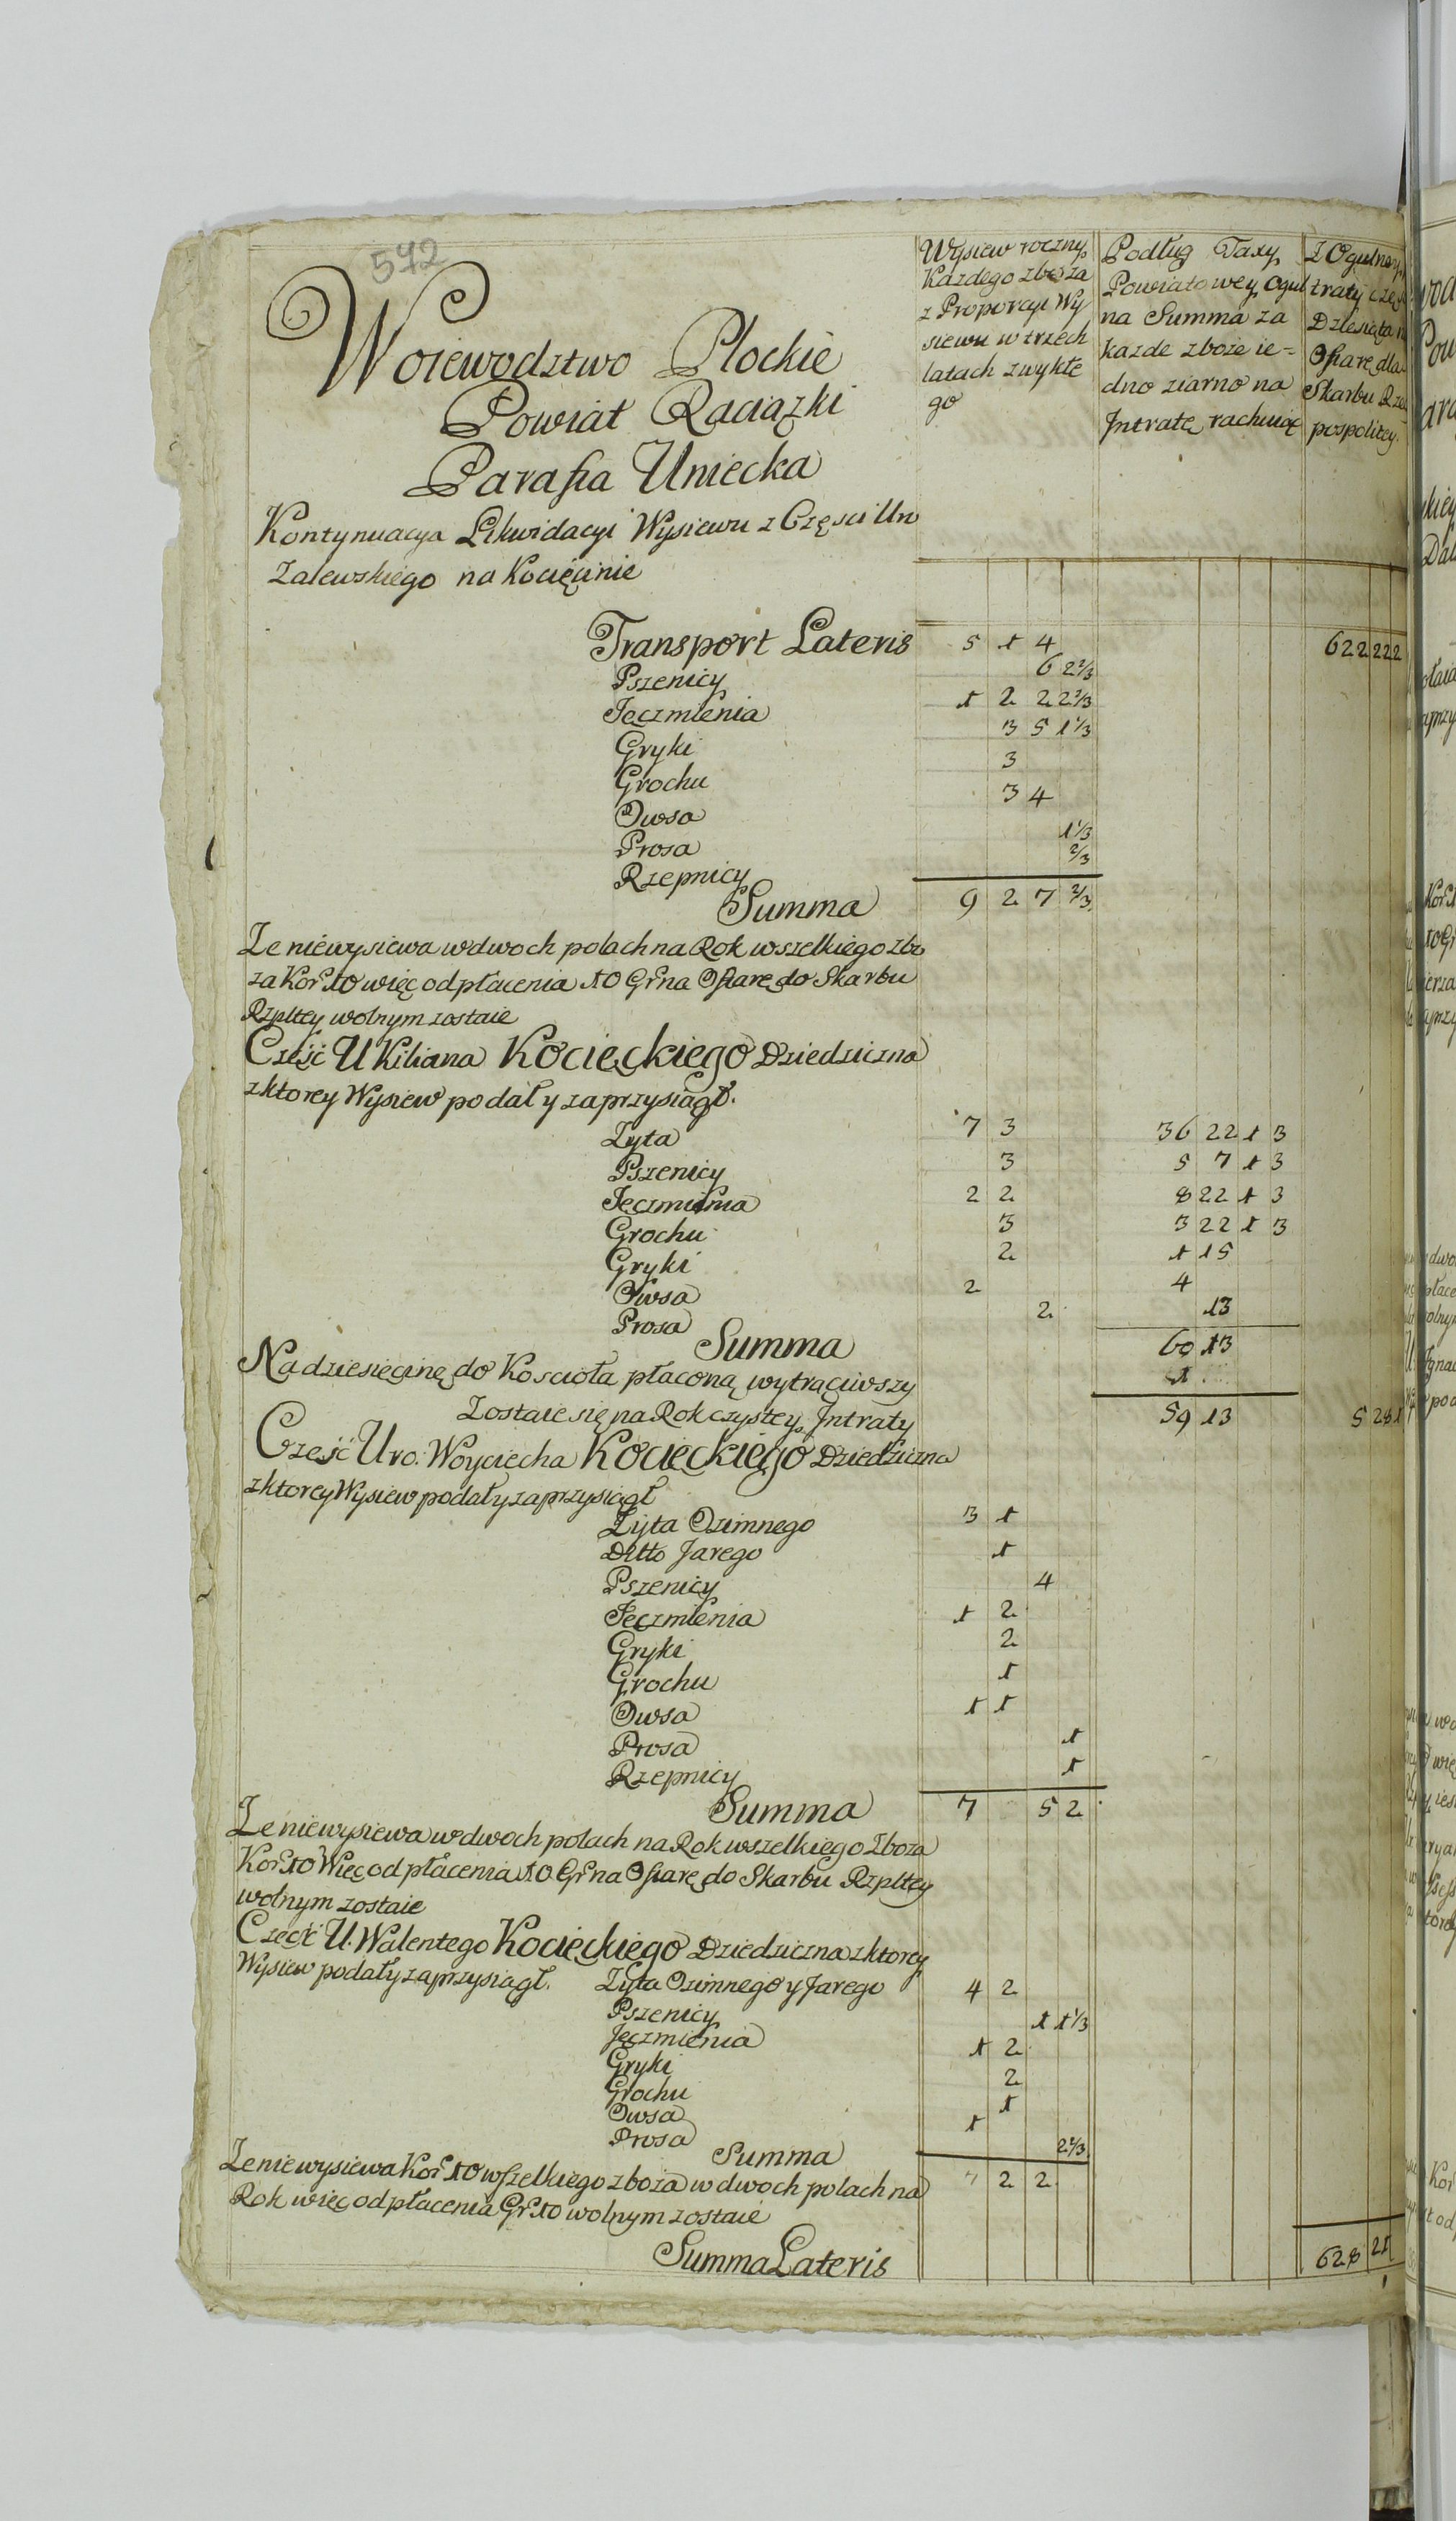 592
Woiewodztwo Płockie
Powiat Raciązki
Parafia Uniecka
Wysiew roczny
Kazdego zboza
z Proporcyi Wy
siewu w trzech
latach zwykłe
go
Podług Taxy
Powiatowey Ogul
na Summa za
kazde zboże ie=
dno ziarno na
Jntratę rachuiąc
Z Ogulney
traty częś
Dziesiąta n
Ofiarę dla
Skarbu Rze
pospolitey.
Kontynuacya Likwidacyi Wysiewu z Częsci Uro
Zalewskiego na Kocięcinie
Transport Lateris 5 1 4 622 22 2
Pszenicy 6 2 2/3
Jęczmienia 1 2 2 2 2/3
Gryki 3 5 1 1/3
Grochu 3
Owsa 3 4
Prosa 1 1/3
Rzepnicy 2/3
Summa 9 2 7 2/3
Ze niewysiewa w dwoch polach na Rok wszelkiego zbo
za Kor: 10 więc od płacenia 10 Gr na Ofiarę do Skarbu
Rzpltey wolnym zostaie
Część U Kiliana Kocięckiego Dziedziczna
z ktorey Wysiew podał y zaprzysiągł.
Zyta 7 3 36 22 1 3
Pszenicy 3 5 7 1 3
Jęczmienia 2 2 8 22 1 3
Grochu 3 3 22 1 3
Gryki 2 1 15
Owsa 2 4
Prosa 2 13
Summa 60 13
Na dziesięcinę do Kościoła płaconą wytrąciwszy 1
Zostaie się na Rok czystey Jntraty 59 13 5 28 1
Część Uro: Woyciecha Kocięckiego Dziedziczna
z ktorey Wysiew podał y zaprzysiągł
Zyta Ozimnego 3 1
Detto Jarego 1
Pszenicy 4
Jęczmienia 1 2
Gryki 2
Grochu 1
Owsa 1 1
Prosa 1
Rzepnicy 1
Summa 7 5 2
Ze niewysiewa w dwoch polach na Rok wszelkiego Zboza
Kor: 10 Więc od płacenia 10 Gr na Ofiarę do Skarbu Rzpltey
wolnym zostaie
Część U. Walentego Kocięckiego Dziedziczna z ktorey
Wysiew podał y zaprzysiągł. Zyta Ozimnego y Jarego 4 2
Pszenicy 1 1 1/3
Jęczmienia 1 2
Gryki 2
Grochu 1
Owsa 1
Prosa 2 2/3
Summa 7 2 2
Ze niewysiewa Kor 10 wszelkiego zboza w dwoch polach na
Rok więc od płacenia Gr 10 wolnym zostaie
Summa Lateris 628 21